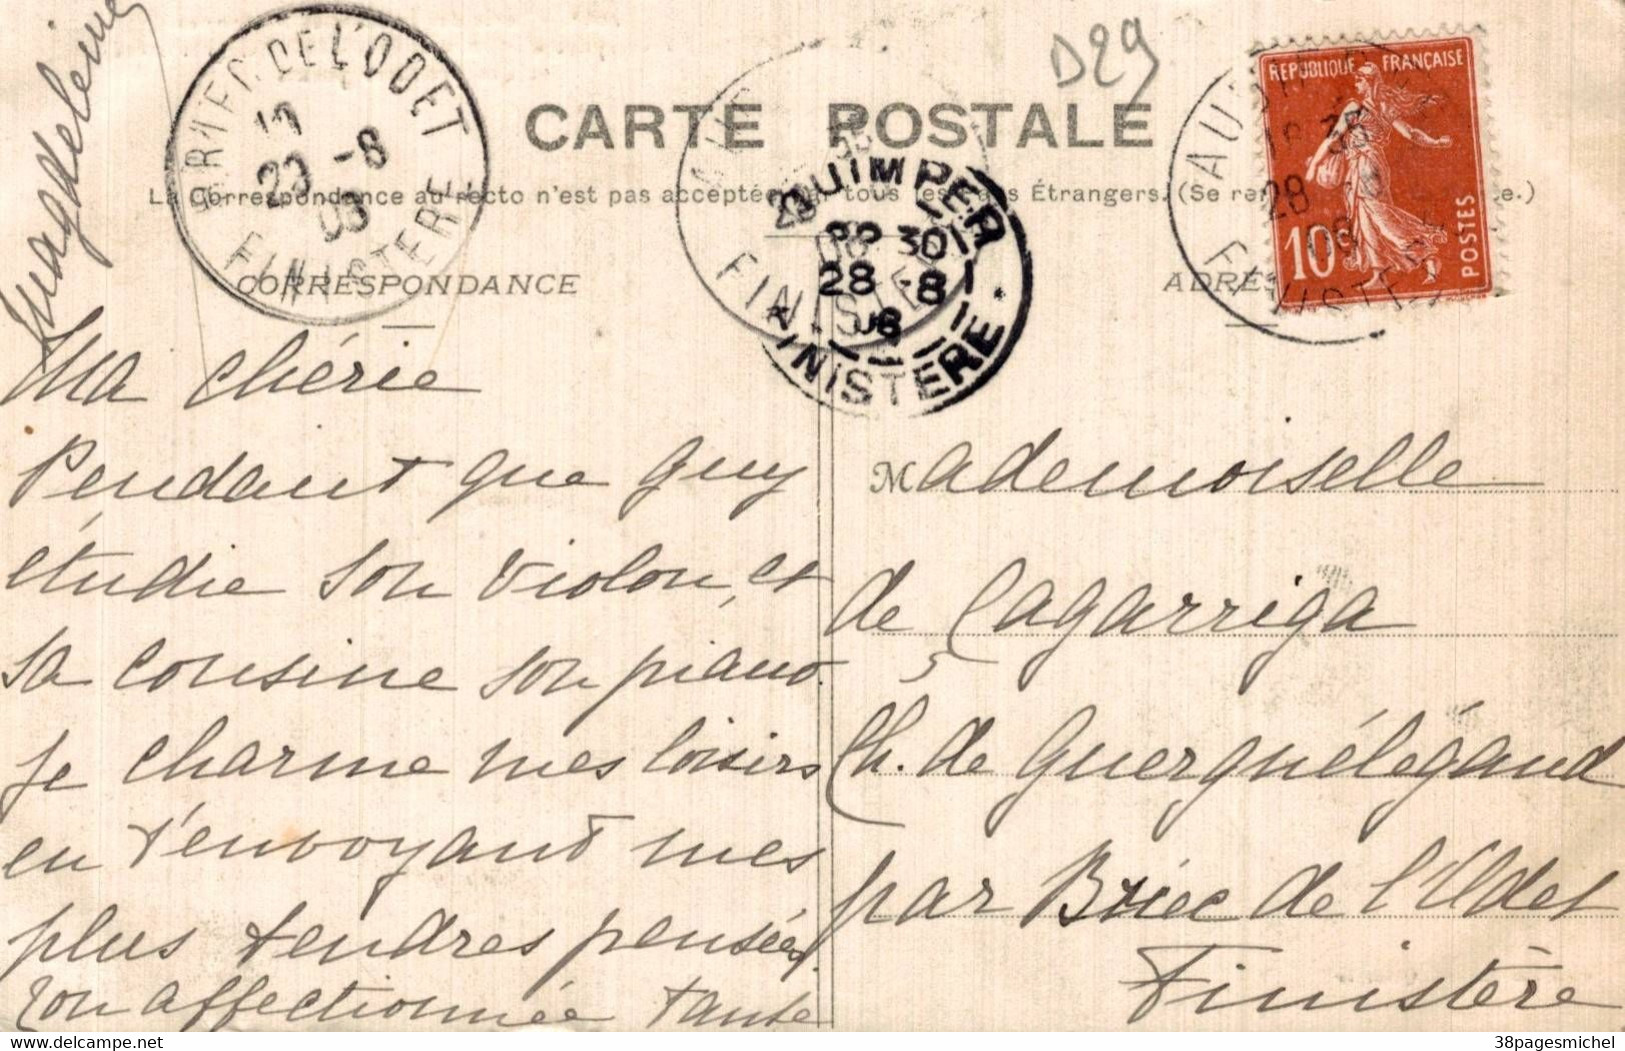 D29
CARTE POSTALE
La Correspondance au recto n'est pas acceptée par tous les Étrangers. (Se e.)
BRIEC DE L'ODET
10
29 -8
08
FINISTERE
QUIMPER
30
28 -8
08
FINISTERE
REPUBLIQUE FRANÇAISE
10c
POSTES
18 35
28
FINISTERE
CORRESPONDANCE
ADRES
Magdeleine
Ma chérie
Pendant que Guy
étudie son violon, et
sa cousine son piano.
je charme mes loisirs
en t'envoyant mes
plus tendres pensées
Ton affectionnée tante
Mademoiselle
de Lagarriga
Ch. de Guerguélégand
par Briec de l'Odet
Finistère
38pagesmichel